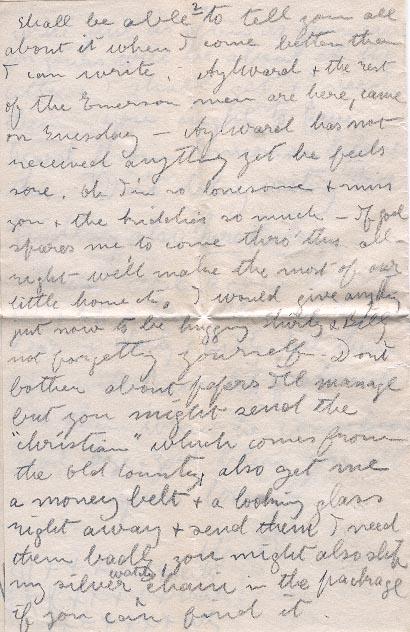 2
Shall be able to tell you all
about it when I come better than
I can write Aylward + the rest
of the Emerson men are here, came
on Tuesday — Aylward has not
received anything yet he feels
sore. Oh I'm so lonesome + miss
you + the kiddies so much — If God
spares me to come thro' this all
right we'll make the most of our
little home etc. I would give anything
just now to be hugging Shirly + Billy
not forgetting yourself. Don't
bother about papers I'll manage
but you might send the
"Christian" which comes from
the old country, also get me
a money belt + a looking glass
right away + send them I need
them badly, you might also slip
my silver watch chain in the package
if you can find it.